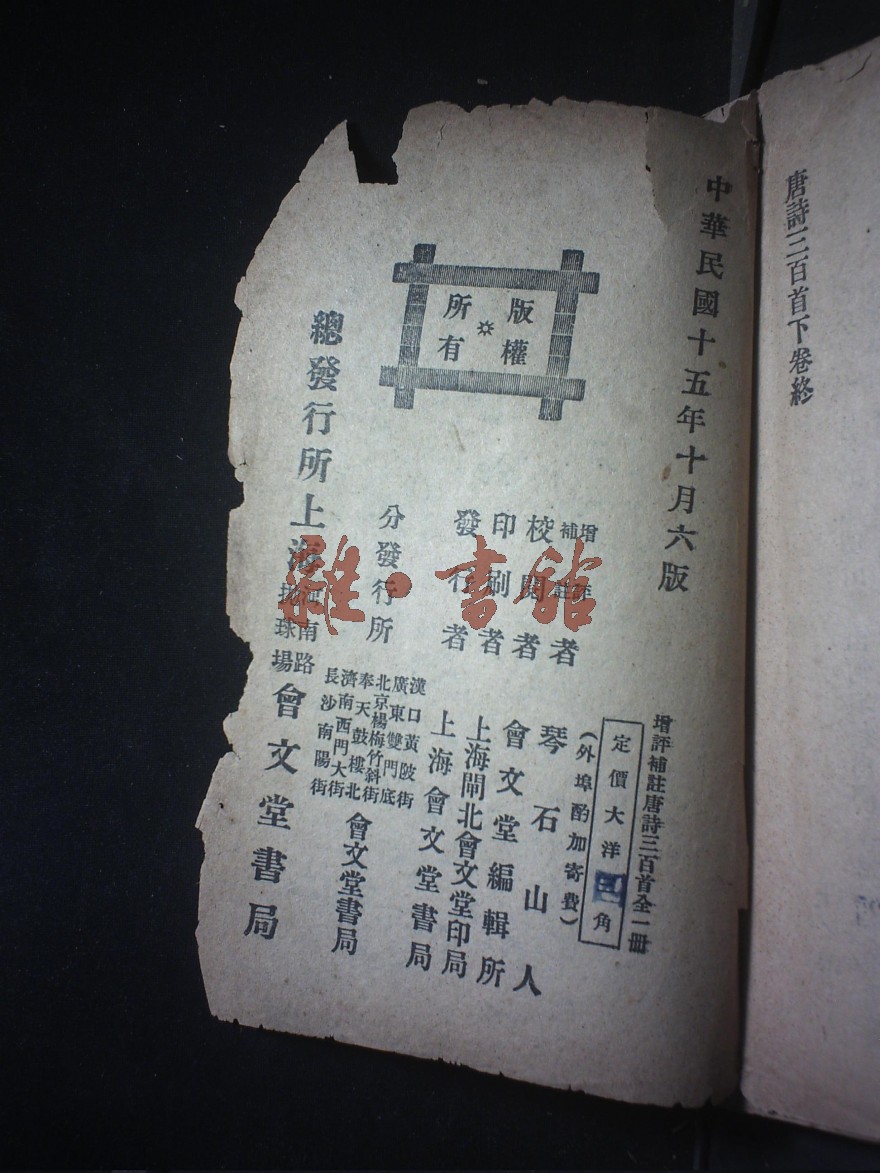 唐詩三百首下卷終
中華民國十五年十月六版
增評補註唐詩三百首全一冊
定價大洋角
(外埠酌加寄費)
增評補註者 琴石山人
校閱者 會文堂編輯所
印刷者 上海閘北會文堂印局
發行者 上海會文堂書局
版權所有
分發行所
漢口黃陂街
廣東雙門底
北京楊梅竹斜街
奉天鼓樓北
濟南西門大街
長沙南陽街
會文堂書局
總發行所上海河南路拋球場會文堂書局
雜·書館